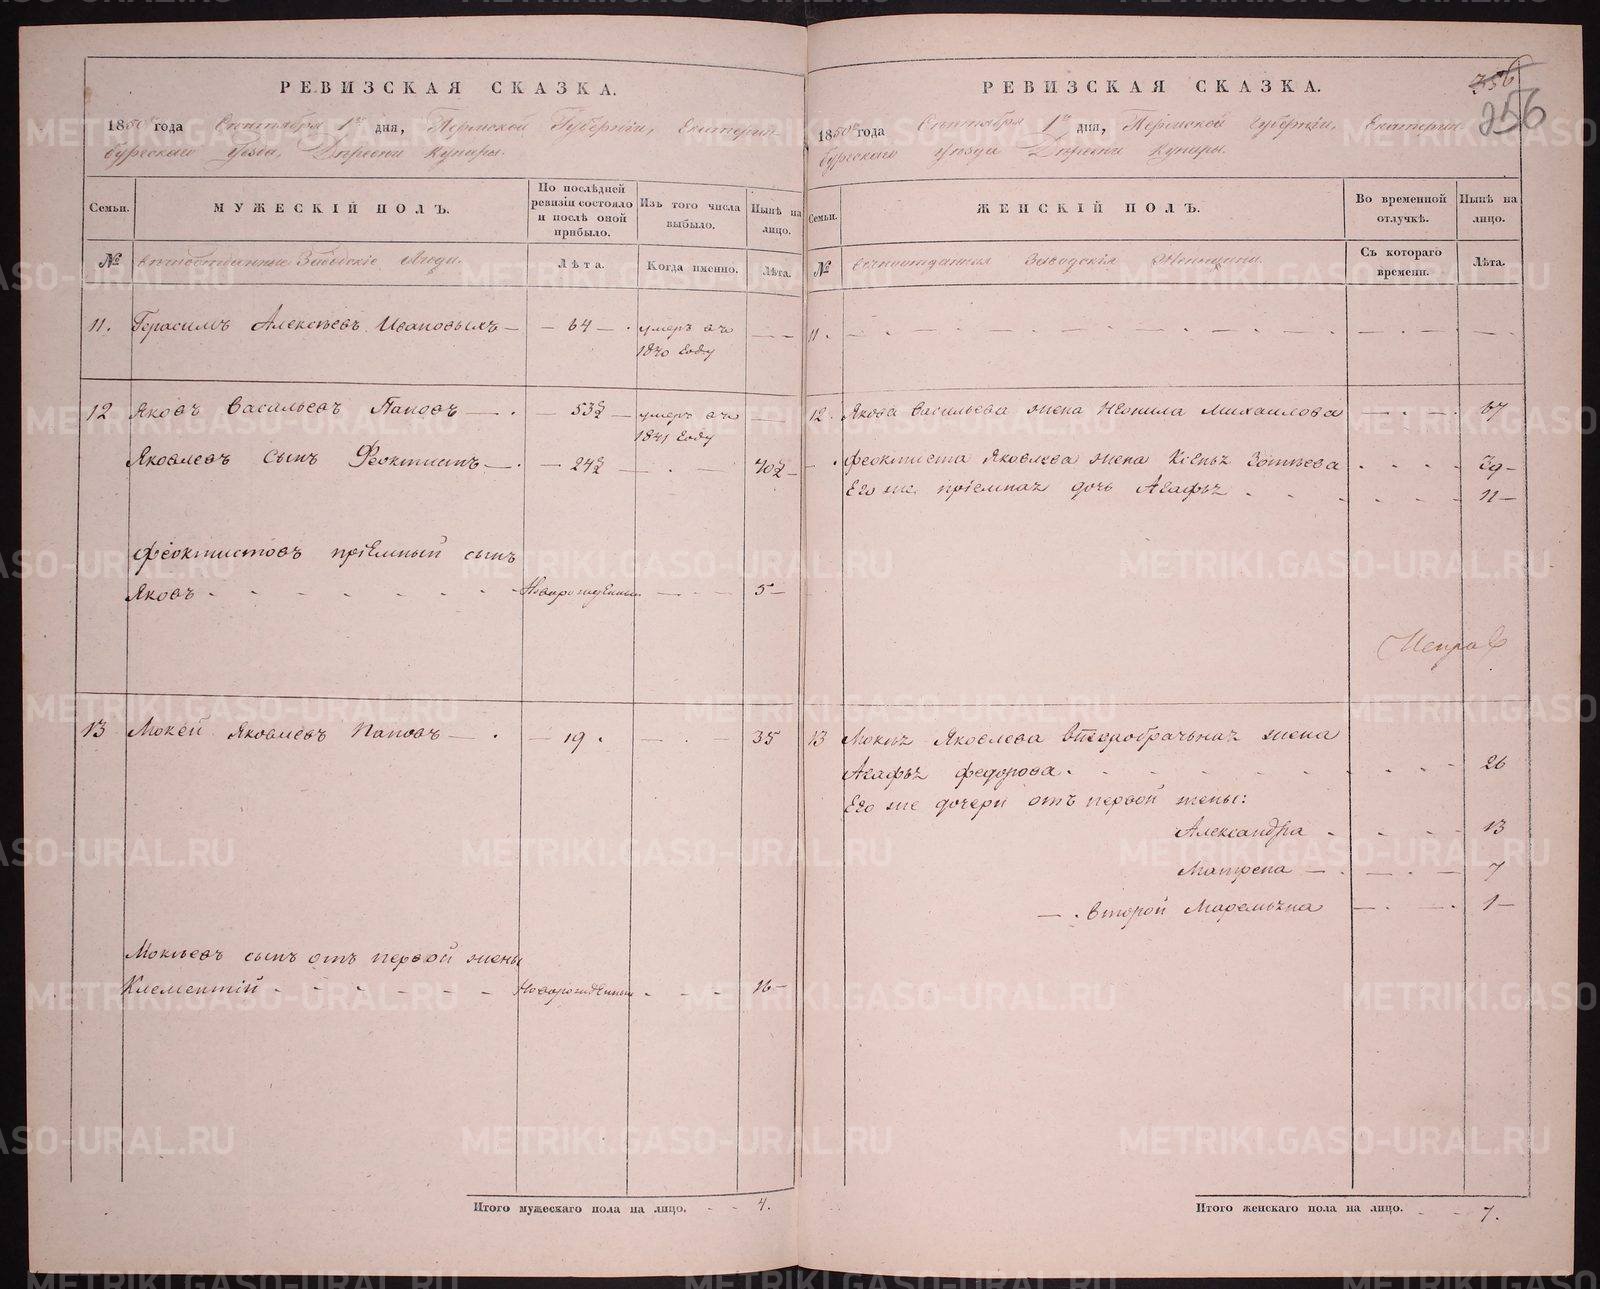 РЕВИЗСКАЯ СКАЗКА.
1850 года Сентября 1го дня, Пермской Губернии, Екатерин
бургскаго уезда, Деревни Кунары.
Семьи.
МУЖЕСКІЙ ПОЛЪ.
По послѣдней ревизіи состояло и послѣ оной прибыло.
Изъ того числа выбыло.
Нынѣ на лицо.
№
вечноотданные Заводскіе Люди.
Лѣта.
Когда именно.
Лѣта.
11. Герасимъ Алексѣевъ Ивановыхъ — — 64 — умеръ въ — —
1840 году
12 Яковъ Васильевъ Паповъ — — 53½ — умеръ въ —
1841 году
Яковлевъ сынъ Феоктистъ — — 24½ — . — 40½ —
Феоктистовъ пріемный сынъ
Яковъ - - - - - - Новорожденный — - - 5 —
13 Мокей Яковлевъ Паповъ — . — 19 . — . — 35
Мокѣевъ сынъ отъ первой жены
Клементій - - - - - - Новорожденный - - - 16 —
Итого мужескаго пола на лицо. - - 4.
РЕВИЗСКАЯ СКАЗКА.
356
256
1850го года Сентября 1го дня, Пермской Губерніи, Екатерин
бургскаго уезда Деревни Кунары.
Семьи.
ЖЕНСКІЙ ПОЛЪ.
Во временной отлучкѣ.
Нынѣ на лицо.
№
вечноотданныя Заводскія Женщины.
Съ котораго времени.
Лѣта.
11.
12. Якова Васильева жена Неонила Михаилова — . — . 67
Феоктиста Яковлева жена Ксенья Зотѣева . . . . 39 —
Его же пріемная дочь Агафья . . . . 11 —
Исправ
13 Мокѣя Яковлева второбрачьная жена
Агафья Федорова . . . . 26
Его же дочери отъ первой жены:
Александра - . - 13
Матрена — . — 7
— . второй Маремьяна — . — . 1 —
Итого женскаго пола на лицо. - - 7.
METRIKI.GASO-URAL.RU